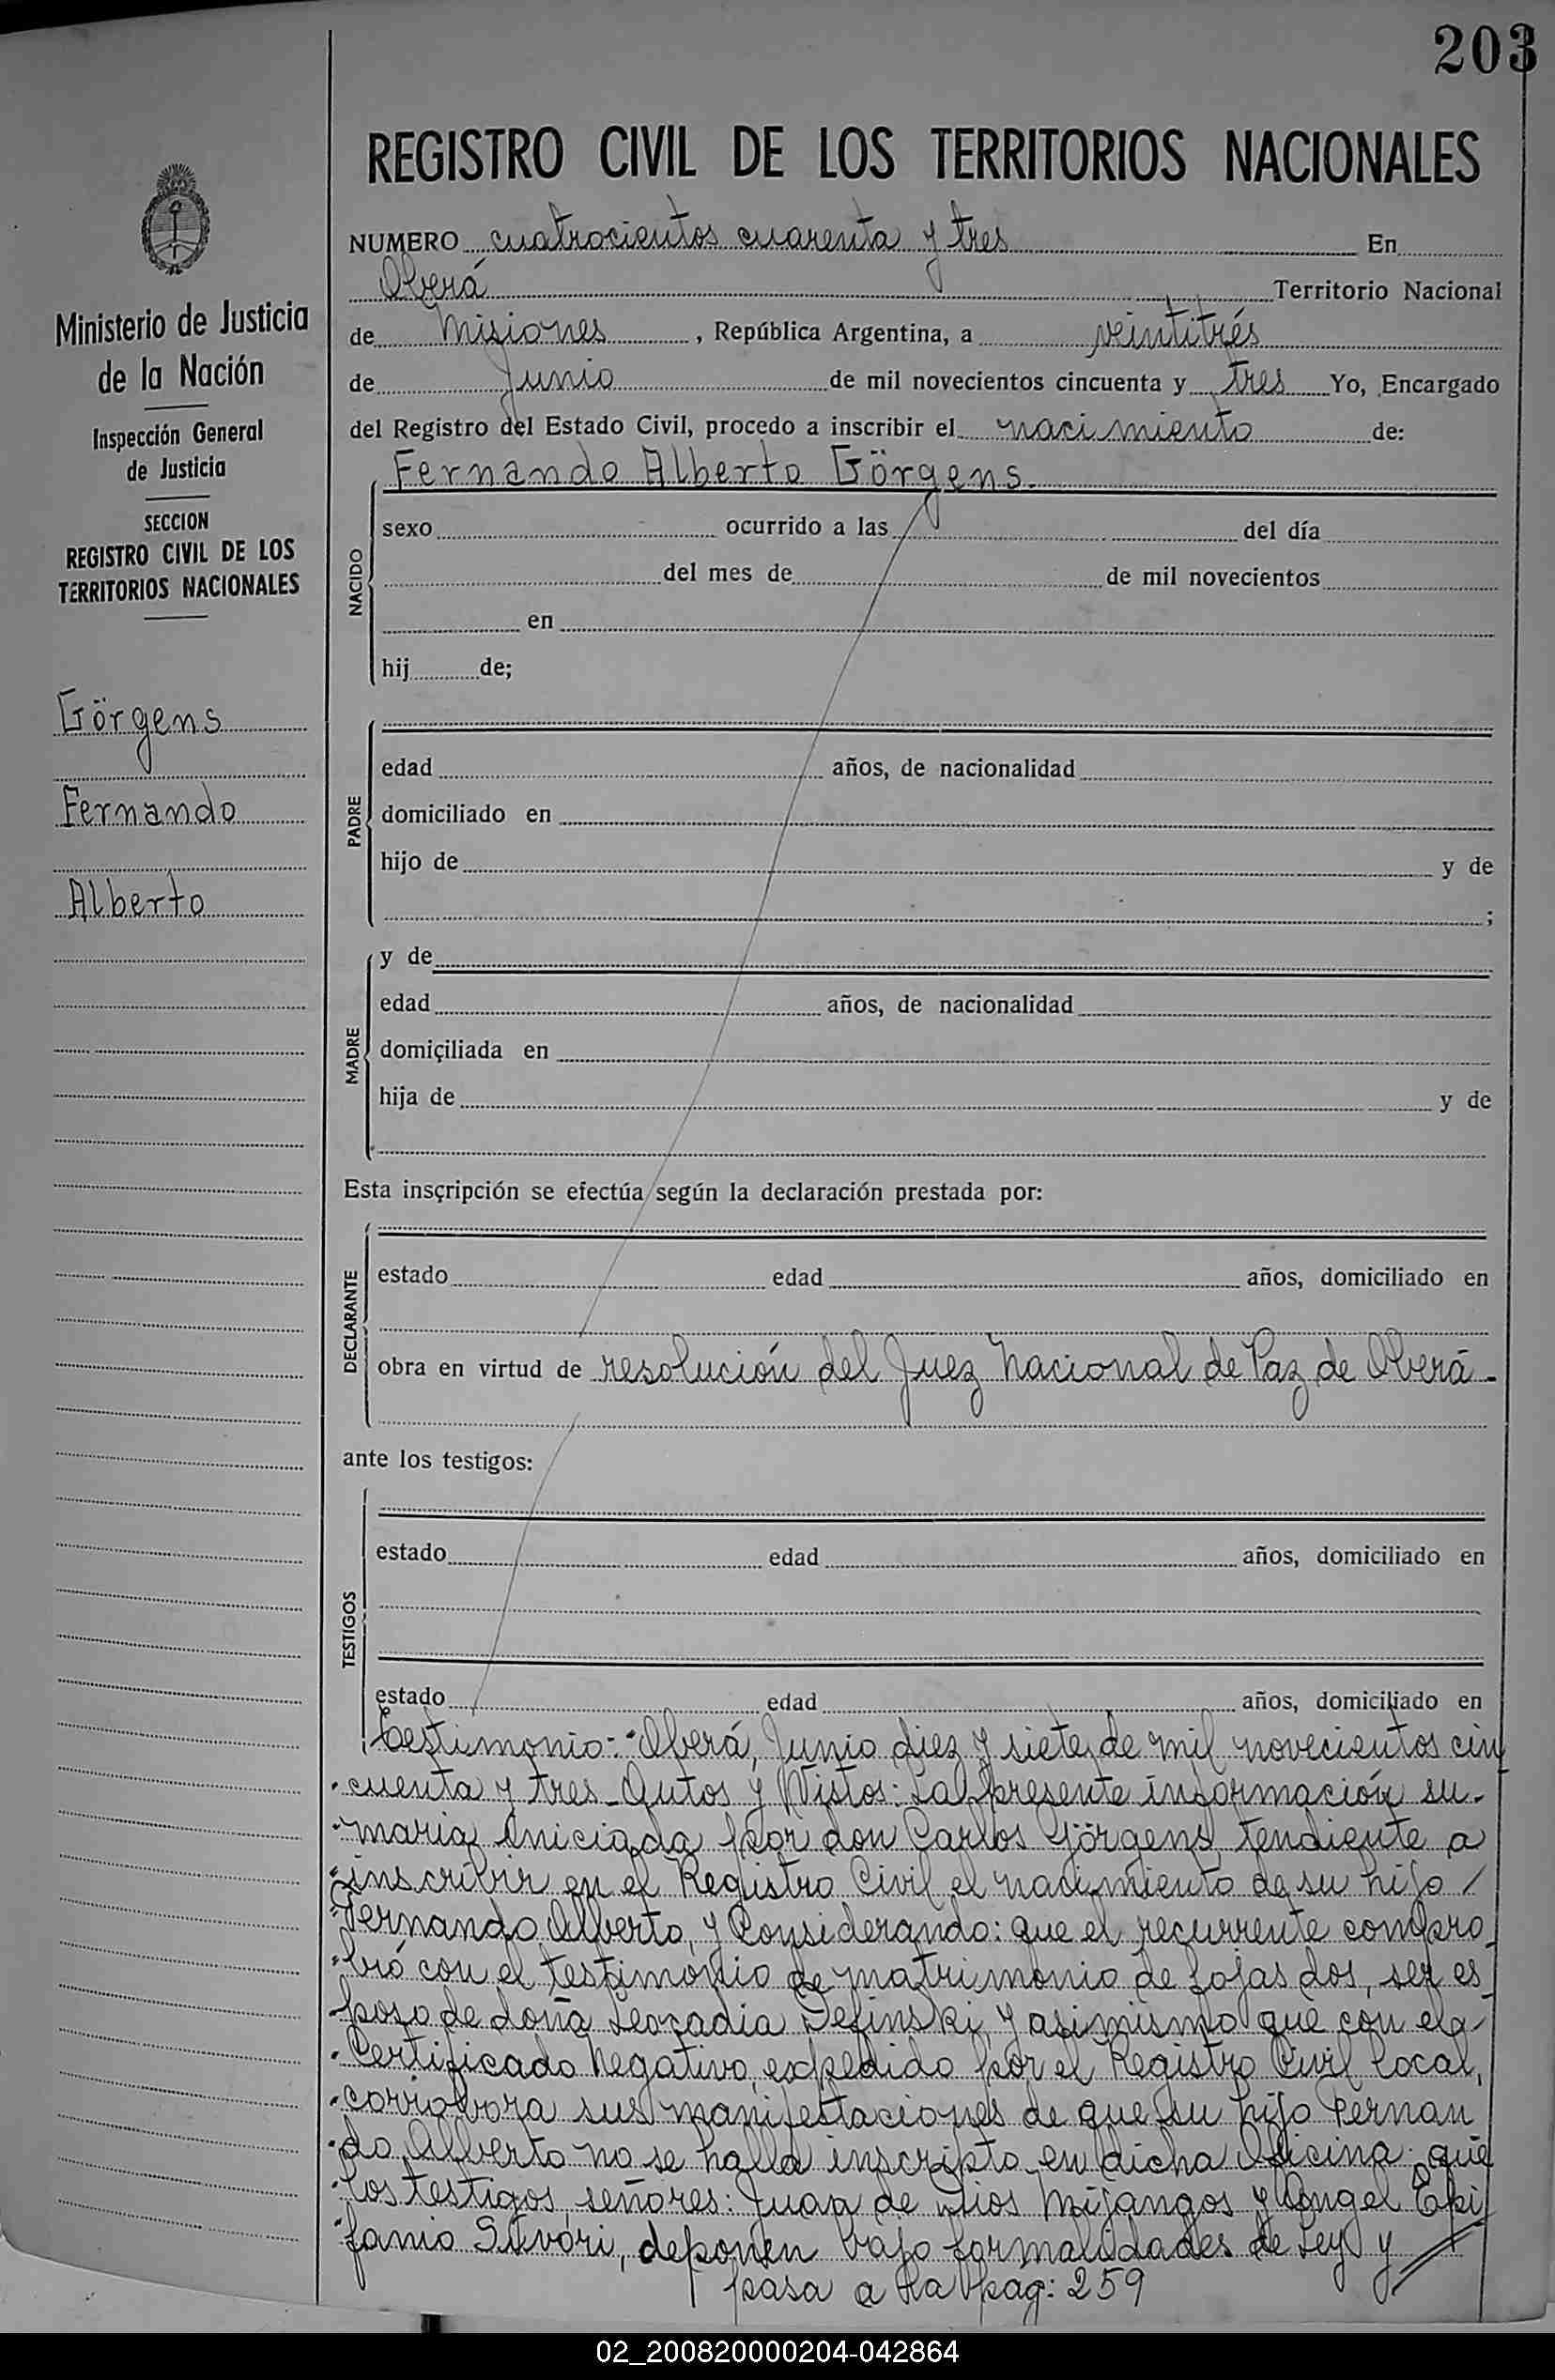 203
REGISTRO CIVIL DE LOS TERRITORIOS NACIONALES
Ministerio de Justicia
de la Nación
Inspección General
de Justicia
SECCION
REGISTRO CIVIL DE LOS
TERRITORIOS NACIONALES
Görgens
Fernando
Alberto
NUMERO cuatrocientos cuarenta y tres En
Oberá Territorio Nacional
de Misiones, República Argentina, a veintitrés
de Junio de mil novecientos cincuenta y tres Yo, Encargado
del Registro del Estado Civil, procedo a inscribir el nacimiento de:
Fernando Alberto Görgens.
NACIDO
sexo ocurrido a las del día
del mes de de mil novecientos
en
hij de;
PADRE
edad años, de nacionalidad
domiciliado en
hijo de y de
;
MADRE
y de
edad años, de nacionalidad
domiciliada en
hija de y de
Esta inscripción se efectúa según la declaración prestada por:
DECLARANTE
estado edad años, domiciliado en
obra en virtud de resolución del Juez Nacional de Paz de Oberá-
ante los testigos:
TESTIGOS
estado edad años, domiciliado en
estado edad años, domiciliado en
Testimonio: "Oberá, Junio diez y siete de mil novecientos cin
"cuenta y tres_Autos y Vistos: La presente información su-
"maria iniciada por don Carlos Görgens, tendiente a
"inscribir en el Registro Civil el nacimiento de su hijo /
"Fernando Alberto, y Considerando: que el recurrente compro_
"bó con el testimonio de matrimonio de fojas dos, ser es_
"poso de doña Leocadia Definski, y asimismo que con el
"Certificado Negativo, expedido por el Registro Civil local,
"corrobora sus manifestaciones de que su hijo Fernan
"do Alberto no se halla inscripto en dicha Oficina: que
"los testigos, señores: Juan de Dios Mijangos y Angel Epi
"fanio Silvori, deponen bajo formalidades de Ley y
pasa a la pág: 259
02_200820000204-042864